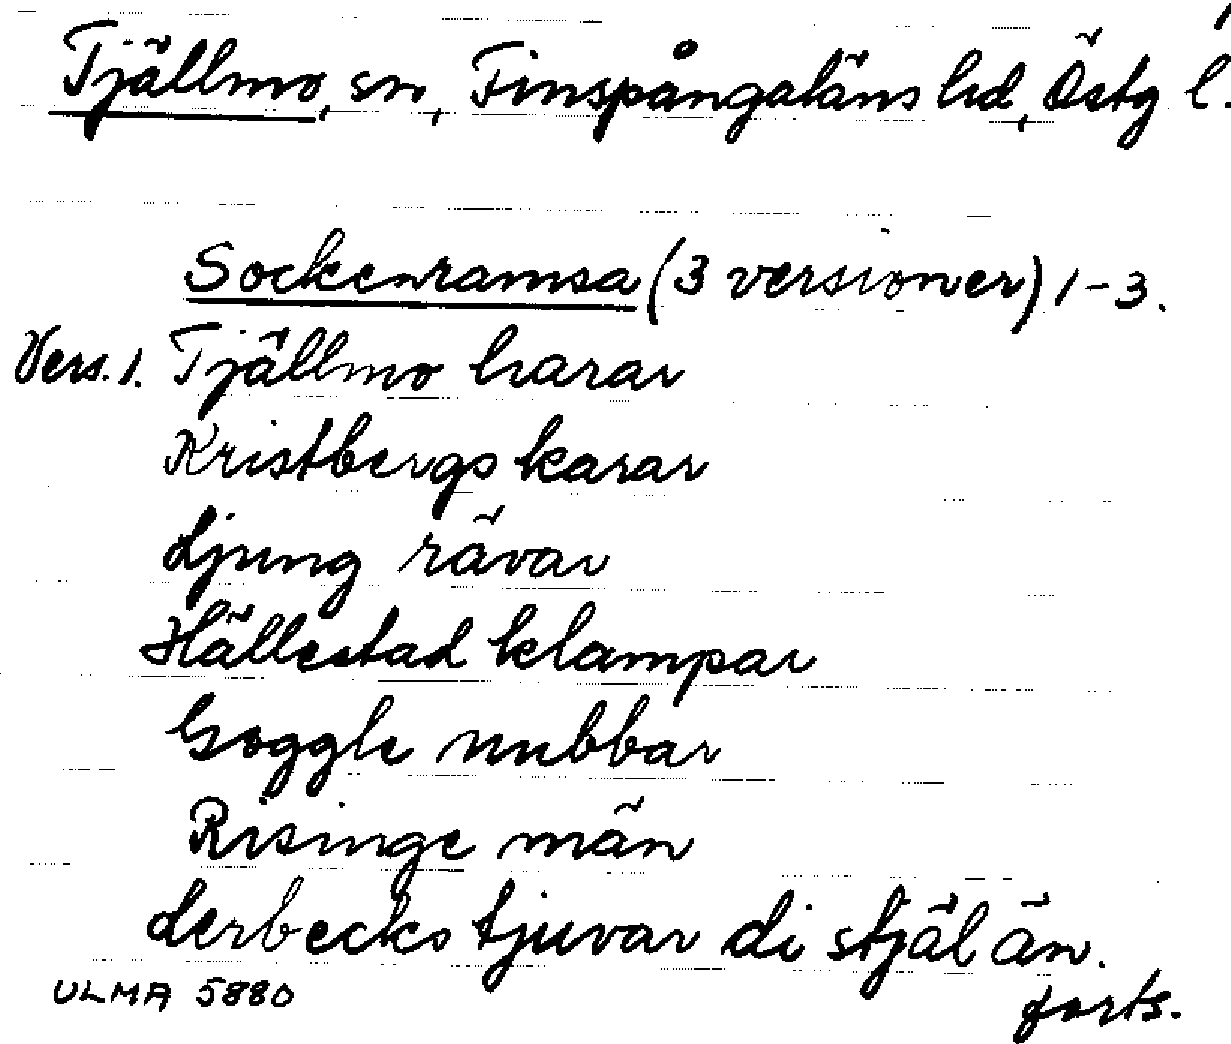 Tjällmo, sn, Finspångaläns hd, Östg l.
Sockenramsa (3 versioner) 1-3.
Vers. 1. Tjällmo harar
Kristbergs karar
Ljung rävar
Hällestad klampar
Goggle nubbar
Risinge män
Lerbecks tjuvar di stjäl än.
ULMA 5880
forts.